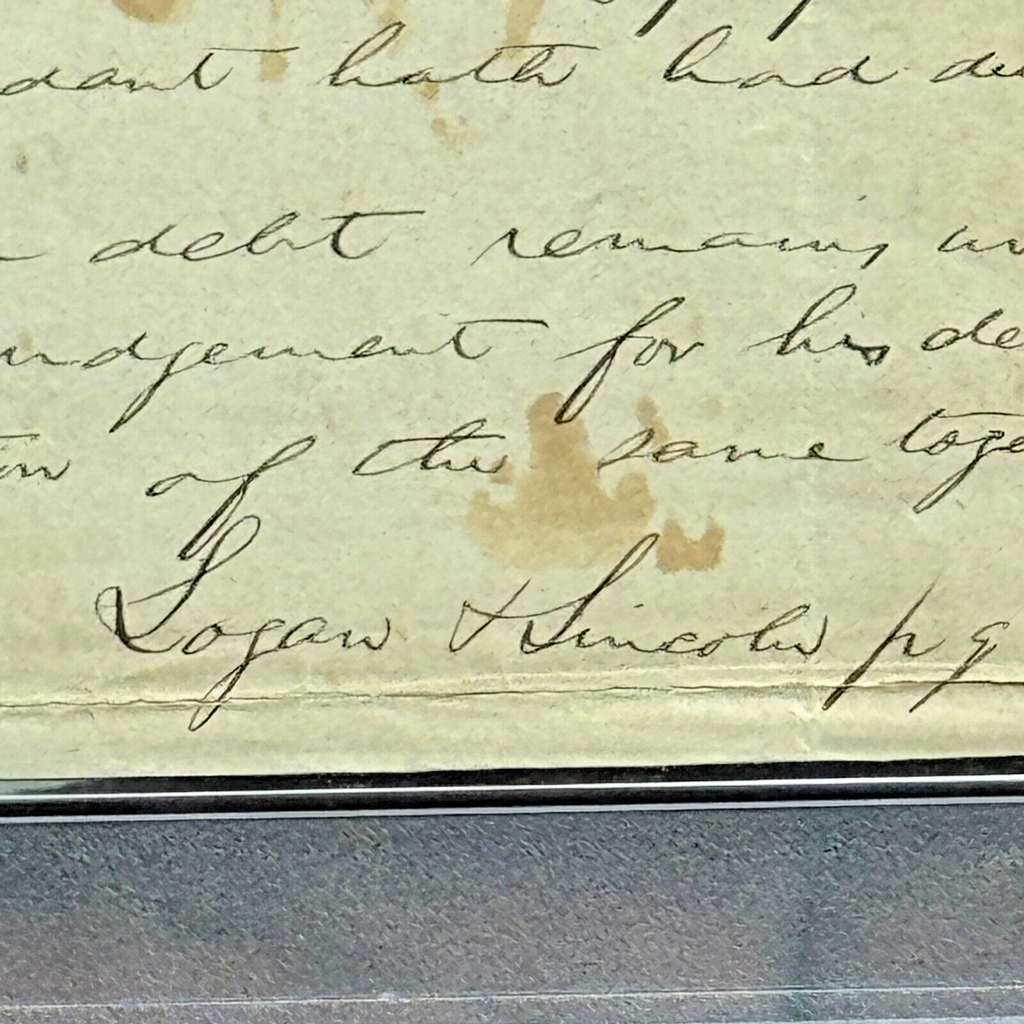 dant hath had due
debt remains un
udgement for his de
of the same toge
Logan & Lincoln p q